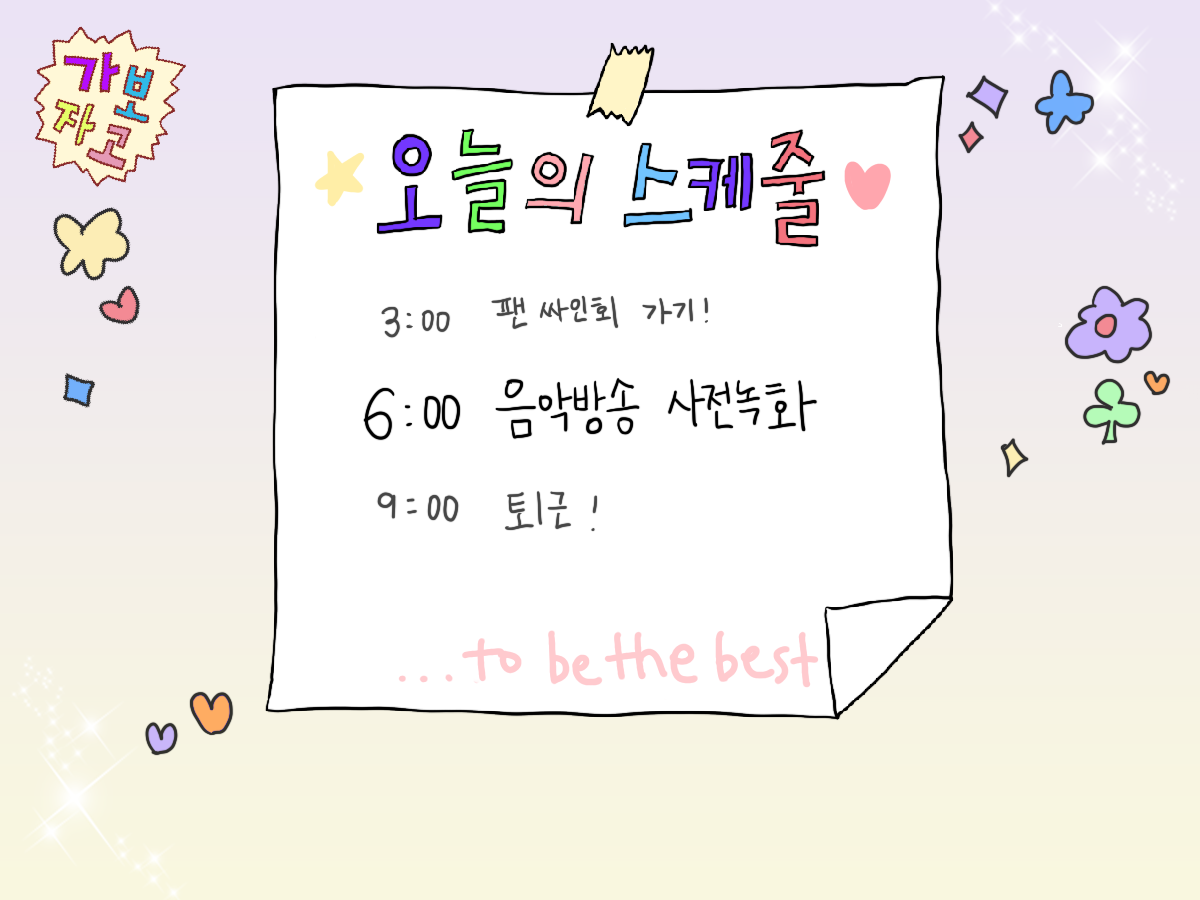 가보
자고
오늘의 스케줄
3:00 팬 싸인회 가기!
6:00 음악방송 사전녹화
9:00 퇴근!
...to be the best